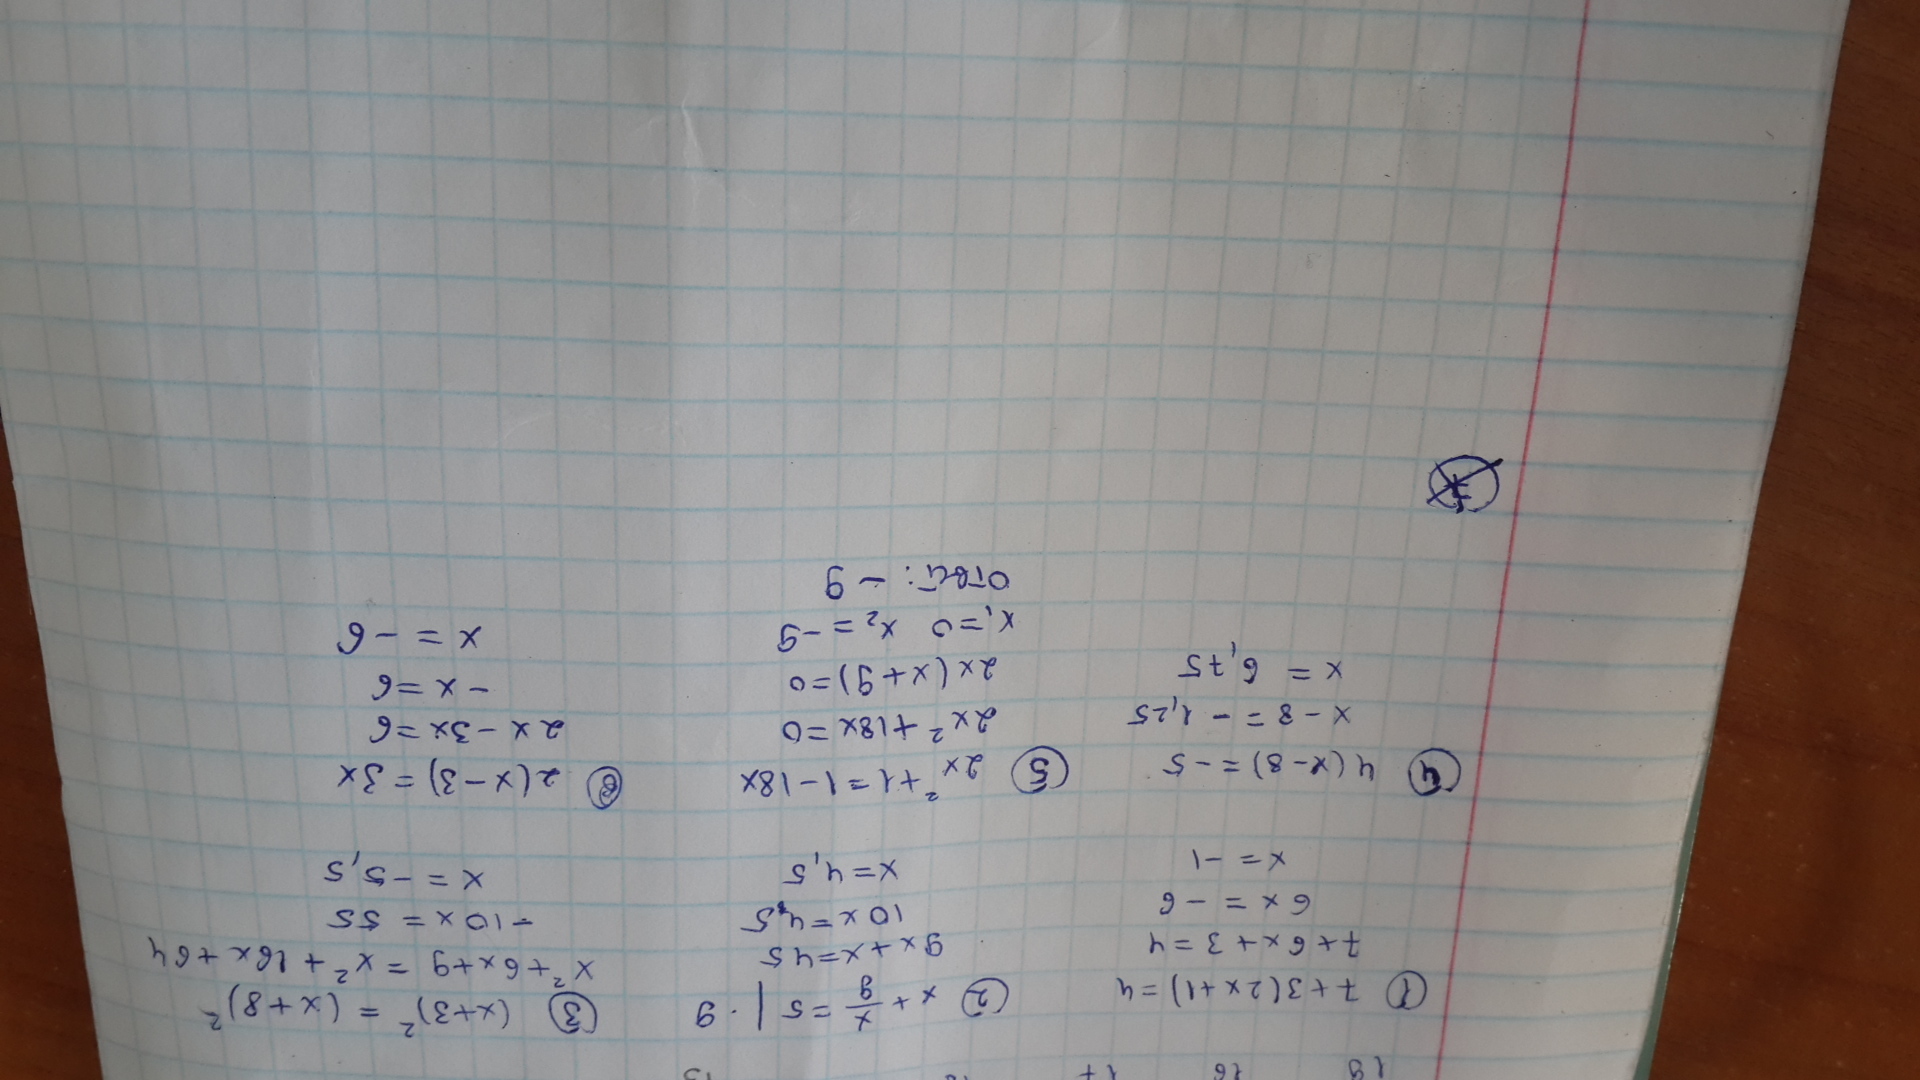 18 16 17
① 7+3(2x+1)=4
7+6x+3=4
6x = -6
x = -1
② x + x/9 = 5 | · 9
9x+x=45
10x=4,5
x=4,5
③ (x+3)² = (x+8)²
x²+6x+9 = x²+16x+64
-10x = 55
x = -5,5
④ 4(x-8)=-5
x-8=-1,25
x = 6,75
⑤ 2x²+1=1-18x
2x²+18x=0
2x(x+9)=0
x₁=0 x₂=-9
ответ: -9
⑥ 2(x-3)=3x
2x-3x=6
-x=6
x=-6